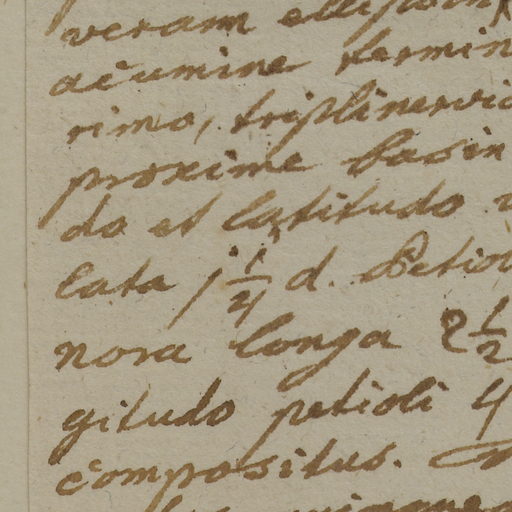 veram ellipsin
acumine termin
rimo, triplinervi
proxime basin
do et latitudo
cata 1 1/4 d. Petio
nora longa 2 1/2
gitudo petioli 4
compositus.